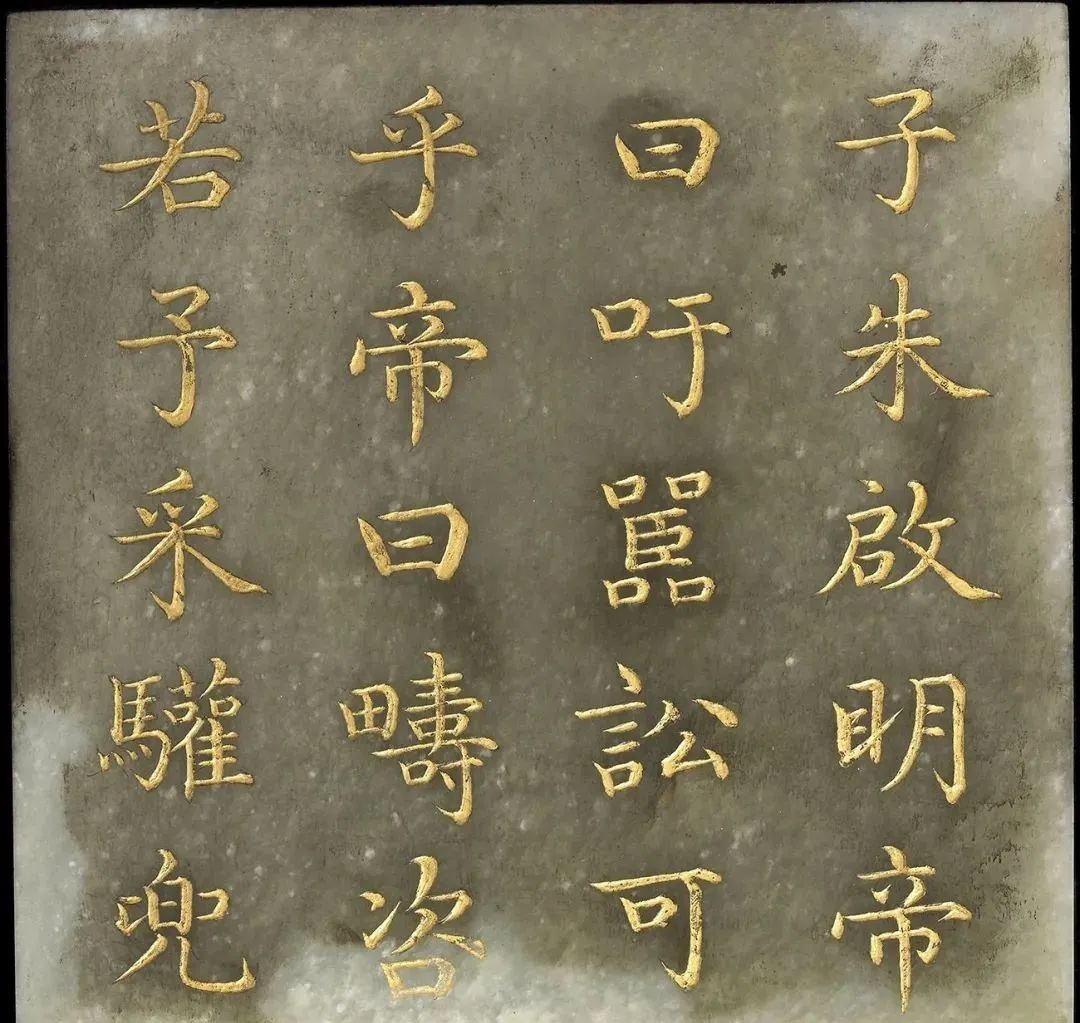 子朱啟眀帝
曰吁嚚訟可
乎帝曰疇咨
若予采驩兜